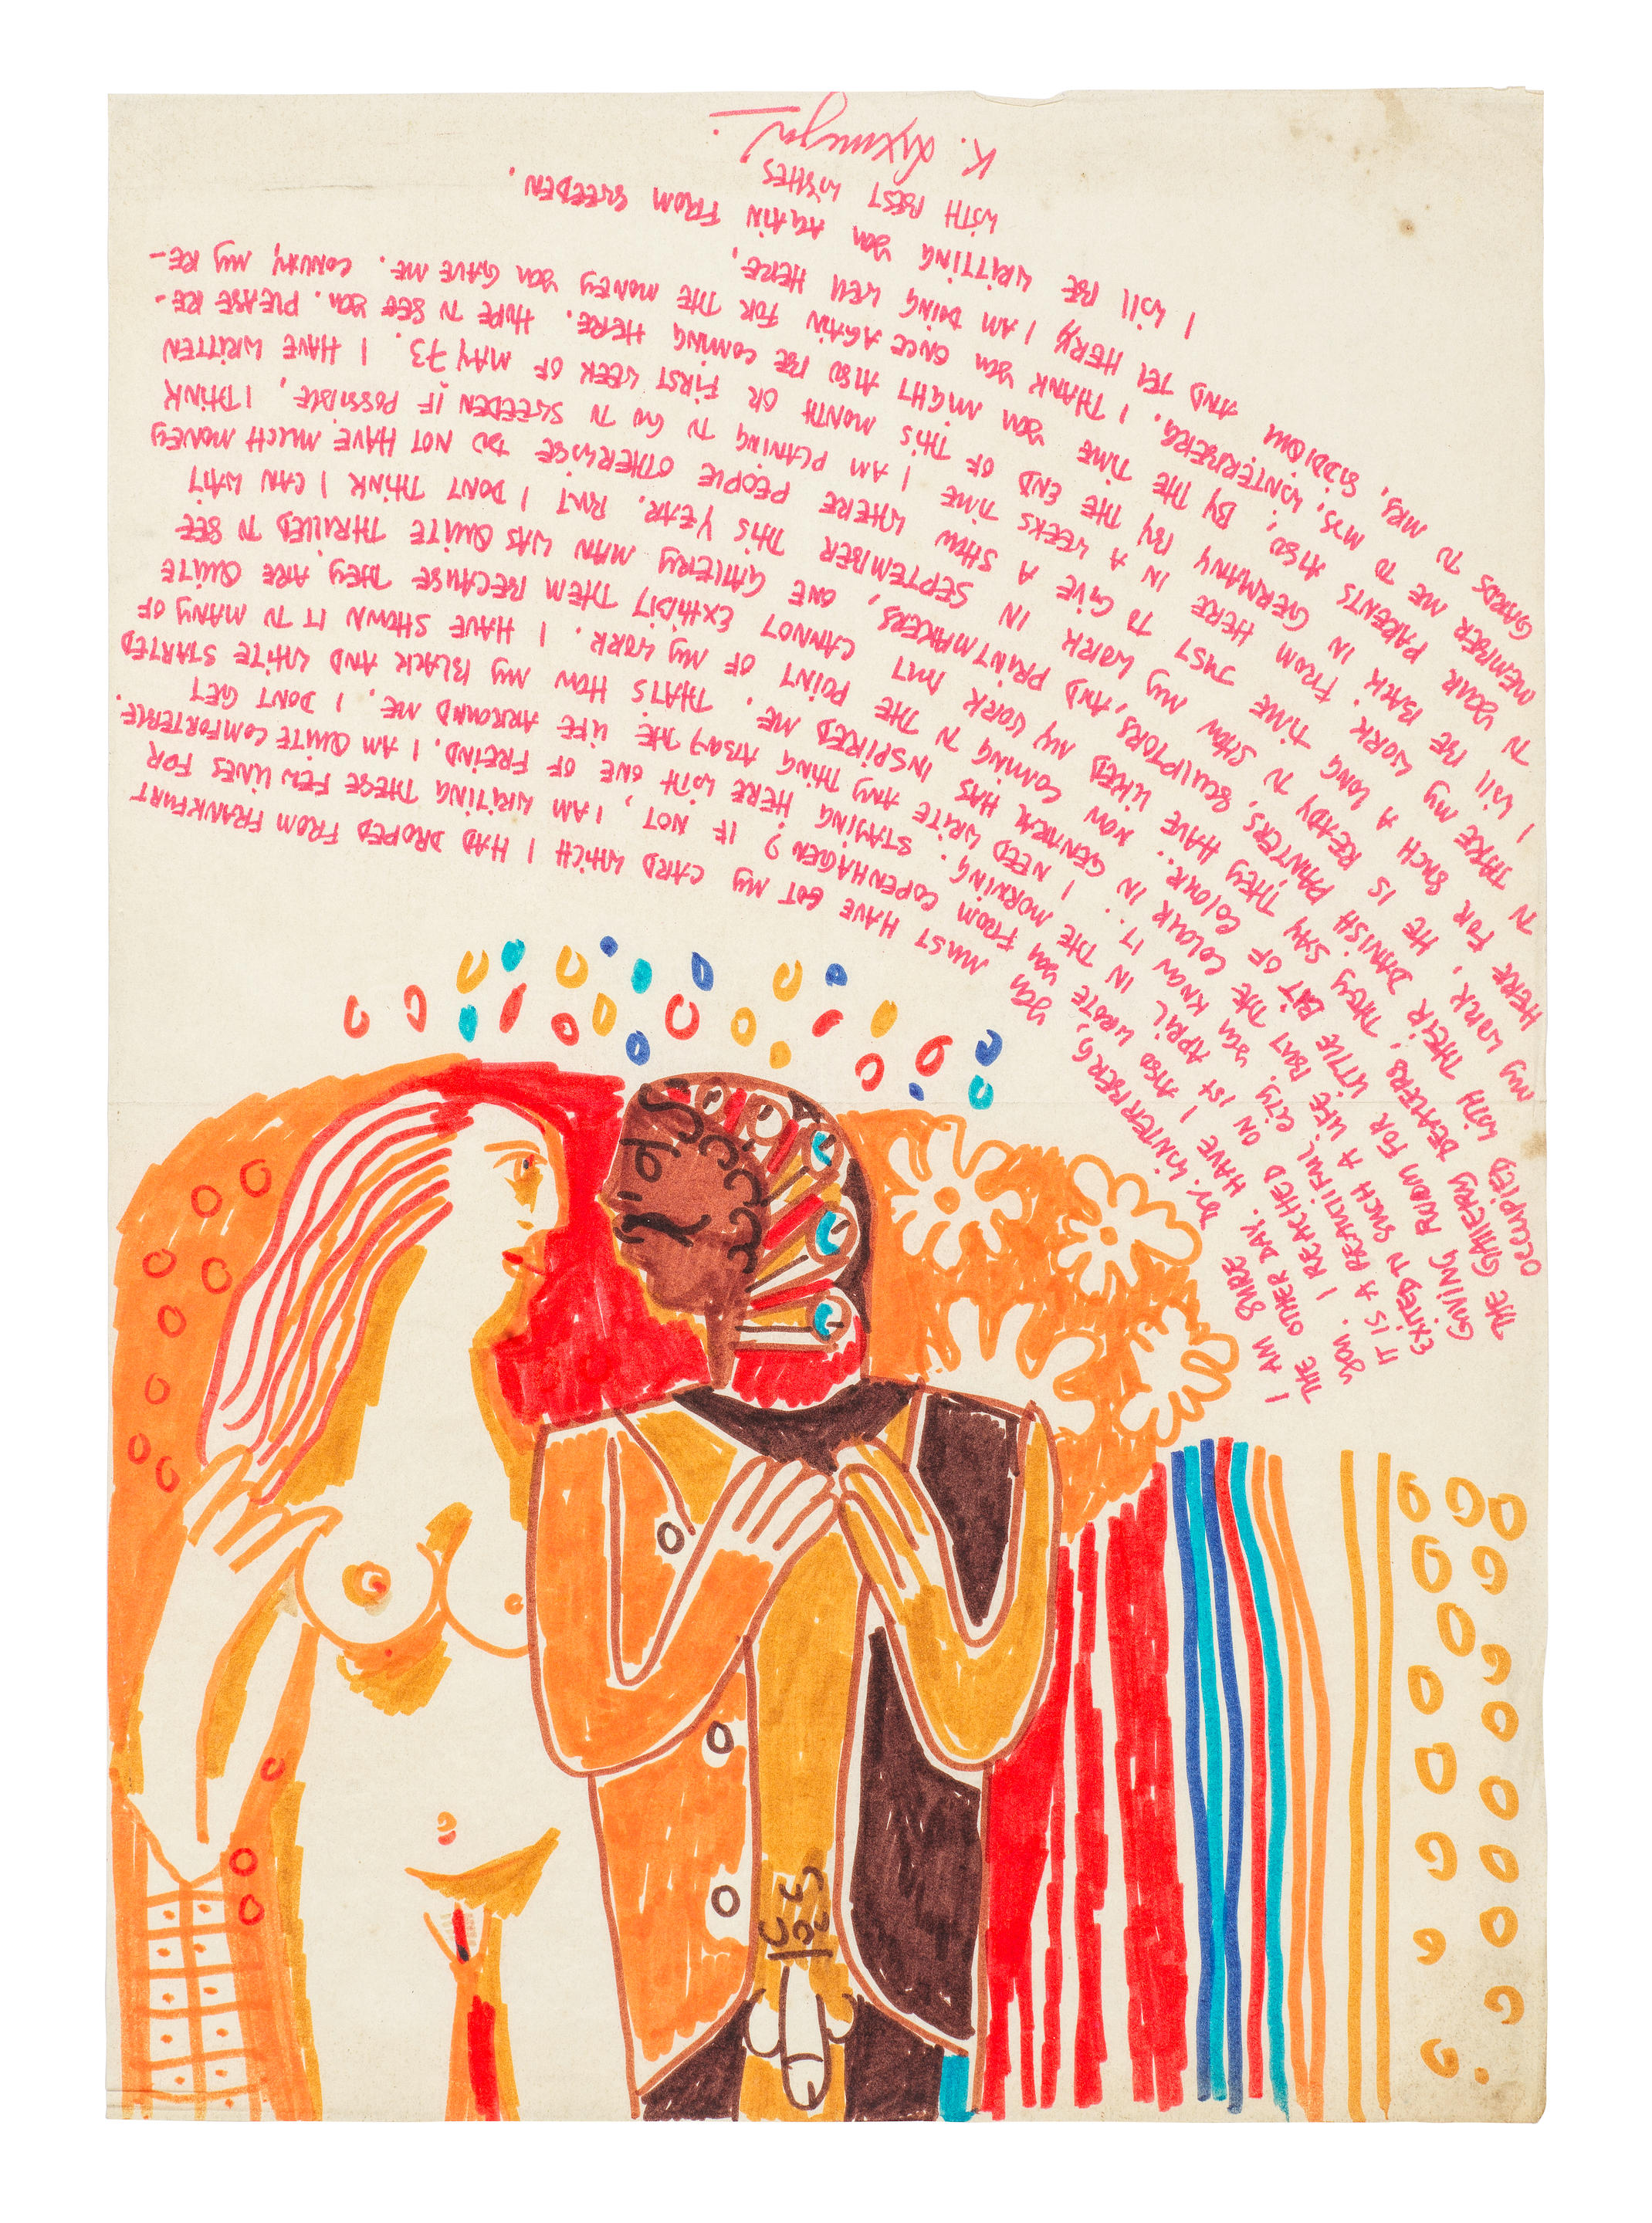 DY. WINTERBERG,
I AM SURE YOU MUST HAVE GOT MY CARD WHICH I HAD DROPED FROM FRANKFURT
THE OTHER DAY. HAVE I ALSO WROTE YOU FROM COPENHAGEN? IF NOT, I AM WRITING THESE FEW LINES FOR
YOU. I REACHED ON 1ST APRIL IN THE MORNING. STAYING HERE WITH ONE OF FREIND. I AM QUITE COMFORTERBLE.
IT IS A BEAUTIFUL CITY. YOU KNOW IT.. I NEED WRITE ANY THING ABOUT THE LIFE ARROUND ME. I DONT GET
EXITED TO SUCH A LIFE BUT THE COLOUR IN GENERAL HAS INSPIRED ME. THATS HOW MY BLACK AND WHITE STARTED
GIVING ROOM FOR LITTLE BIT OF COLOUR.. NOW COMING TO THE POINT OF MY WORK. I HAVE SHOWN IT TO MANY OF
THE GALLERY DEALERS, THEY SAY THEY HAVE LIKED MY WORK BUT CANNOT EXHIBIT THEM BECAUSE THEY ARE QUITE
OCCUPIED WITH THEIR DANISH PAINTERS, SCULPTORS, AND PRINTMAKERS, ONE GALLERY MAN WAS QUITE THRILLED TO SEE
MY WORK, HE IS READY TO SHOW MY WORK IN SEPTEMBER THIS YEAR. BUT I DONT THINK I CAN WAIT
HERE FOR SUCH A LONG TIME JUST TO GIVE A SHOW WHERE PEOPLE OTHERWISE DO NOT HAVE MUCH MONEY
TO TAKE MY WORK. FROM HERE IN A WEEKS TIME I AM PLANING TO GO TO SWEEDEN IF POSSIBLE, I THINK
I WILL BE BACK IN GERMANY BY THE END OF THIS MONTH OR FIRST WEEK OF MAY 73. I HAVE WRITTEN
TO YOUR PARENTS ALSO, BY THE TIME YOU MIGHT ALSO BE COMING HERE. HOPE TO SEE YOU. PLEASE RE-
MEMBER ME TO MYS. WINTERBERG. I THANK YOU ONCE AGAIN FOR THE MONEY YOU GAVE ME. CONVAY MY RE-
GAARDS TO MRS. SIDDIQUI AND TELL HERY I AM DOING WELL HERE.
I WILL BE WRITTING YOU AGAIN FROM SWEEDEN.
WITH BEST WISHES
K.